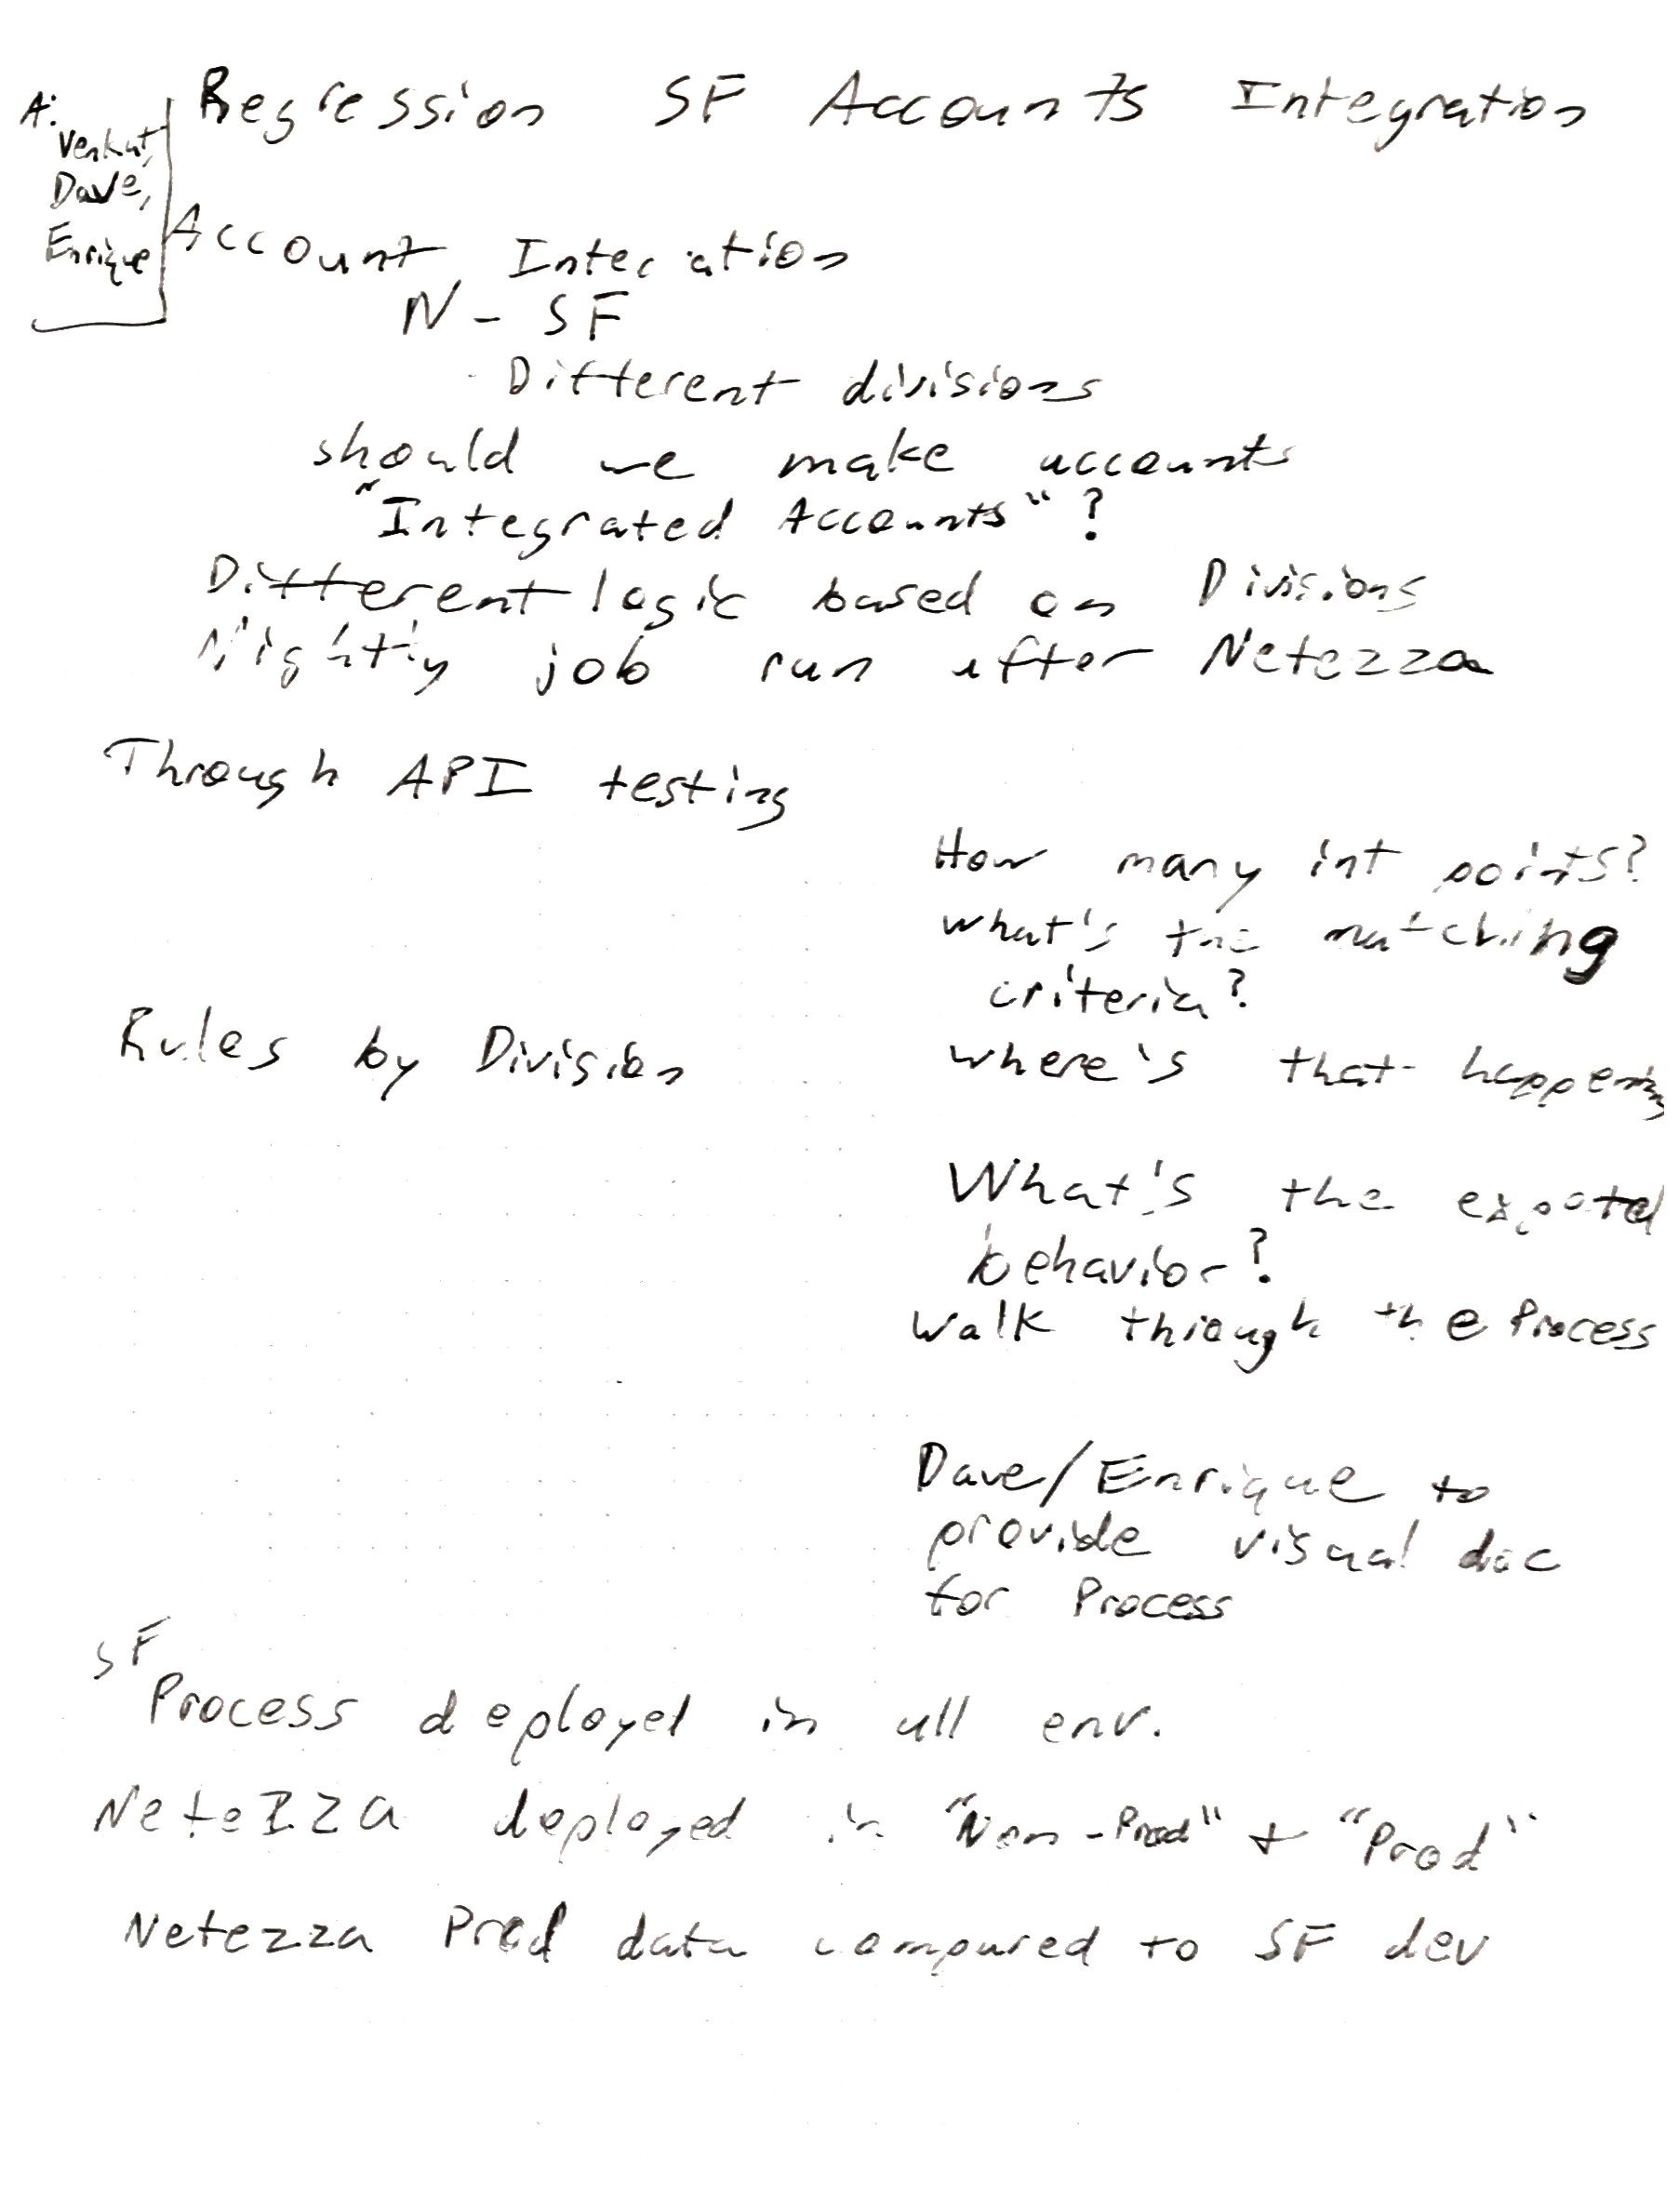 Regression SF Accounts Integration
A:
Venkat,
Dave,
Enrique
Account Interation
N - SF
- Different divisions
should we make accounts
"Integrated Accounts"?
Different logic based on Divisions
Nightly job run after Netezza
Through API testing
How many int points?
what's the matching
criteria?
Rules by Division
where's that happening
What's the expected
behavior?
Walk through the Process
Dave/Enrique to
provide visual doc
for Process
SF
Process deployed in all env.
Netezza deployed in "Non-Prod" + "Prod"
Netezza Prod data compared to SF dev